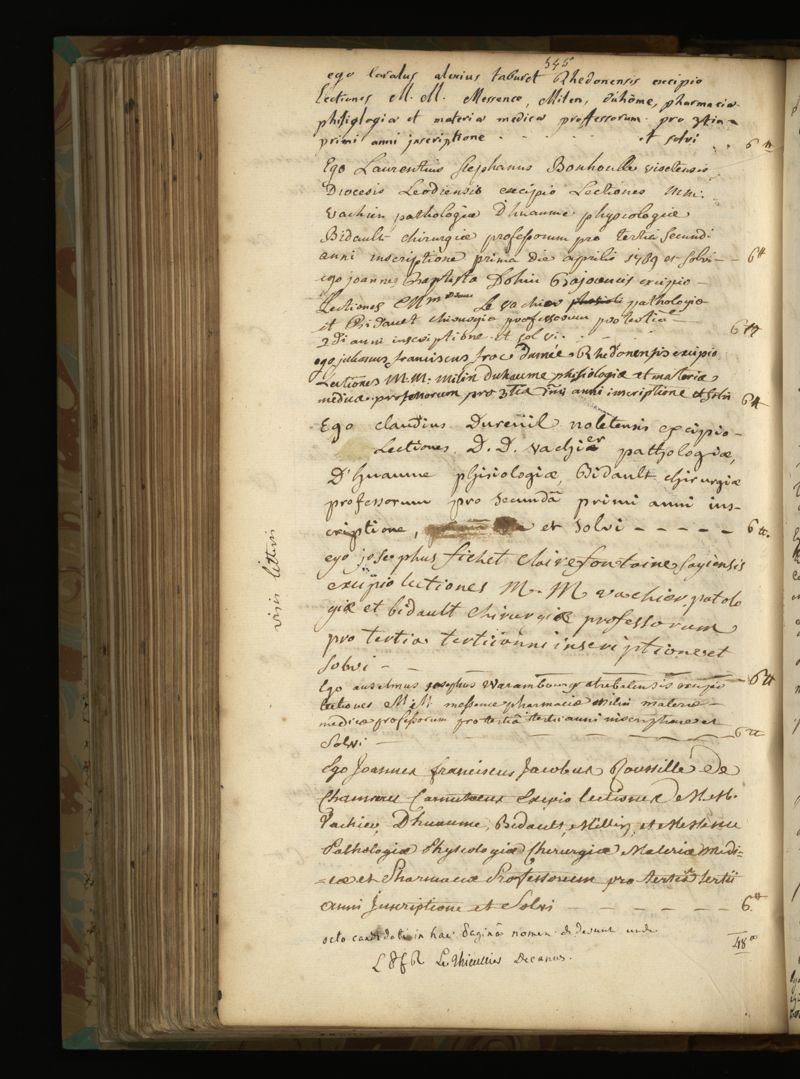 345
ego alexius taburet Rhedonensis excipio
Lectiones M. M. Messence, Milen, duhôme, pharmaciæ
phisiologiæ et materiæ medicæ professorum pro 3tia
primi anni inscriptione et solvi 6 tt
Ego Laurentius stephanus Bonhoulle visetensis
Diocesis Leodiensis excipio Lectiones mm.
Vachier pathologiæ D'huaume physiologiæ
Bidault chirurgiæ professorum pro tertia secundi
anni inscriptione prima die aprilis 1789 et solvi - - 6 tt
ego joannes Baptista excipio
Lectiones Le vachier pathologiæ
et Bidault chirurgiæ professorum pro tertia
2di anni inscriptione et solvi. 6 tt
ego julianus franciscus froc dumée Rhedonensis excipio
Lectiones M.M. milin Duhaume phisiologiæ et materiæ
medicæ professorum pro 3tia anni inscriptione et solvi 6 tt
Ego claudius Dureüil noletensis excipio
Lectiones D. D. vachier pathologiæ,
D'huaume phisiologiæ, Bidault chirurgiæ
professorum pro secundâ primi anni ins-
criptione, et solvi - - - - - 6 tt.
ego josephus fichet clairefontaine sagiensis
excipio lectiones M. M vachier patolo
giæ et bidault chirurgiæ professorum
pro tertia tertii anni inscriptione et
solvi - - 6 tt
Ego anselmus josephus Warambourg atrebatensis excipio
lectiones M. M. messence pharmaciæ milin materiæ
medicæ professorum pro tertiâ tertii anni inscriptione et
Solvi 6 tt
Ego Joannes franciscus Jacobus Roussille De
Chamseru Carnutaeus Excipio lectiones M.M.
Vachier, Dhuaume, Bidault, Millin, et Messence
Pathologiæ Physiologiæ Chirurgiæ Materiæ Medi-
-cæ et Pharmaciæ Professorum pro tertiâ tertii
anni Inscriptione et Solvi - - - - - - 6 tt
octo candidati in hac paginâ nomen dederunt unde 48
Le Thieullier Decanus.
visis litteris